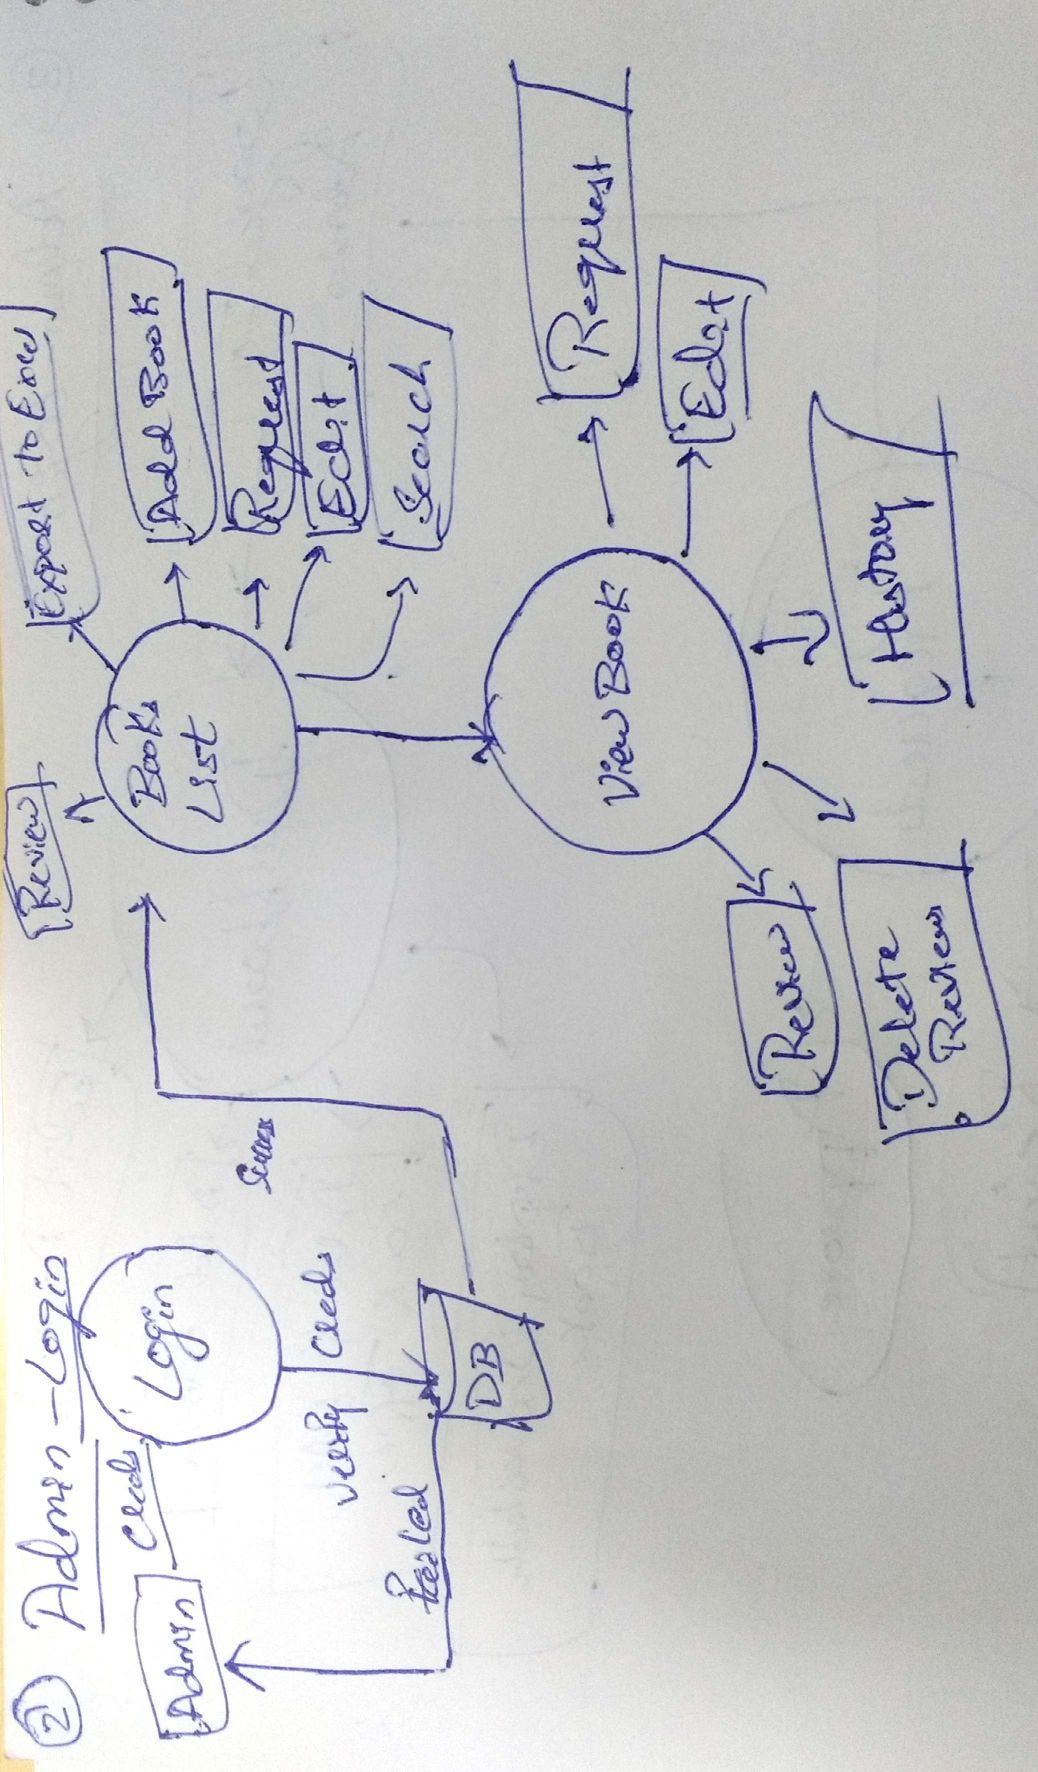 ② Admin-Login
Admin
Creds
Login
Verify Creds
DB
Failed
Success
Books
List
Review
Export to Excel
Add Book
Request
Edit
Search
View Book
Request
Edit
History
Delete
Review
Review